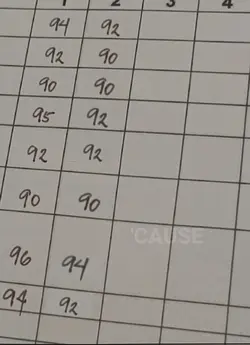 1 2 3 4
94 92
92 90
90 90
95 92
92 92
90 90
'CAUSE
96 94
94 92